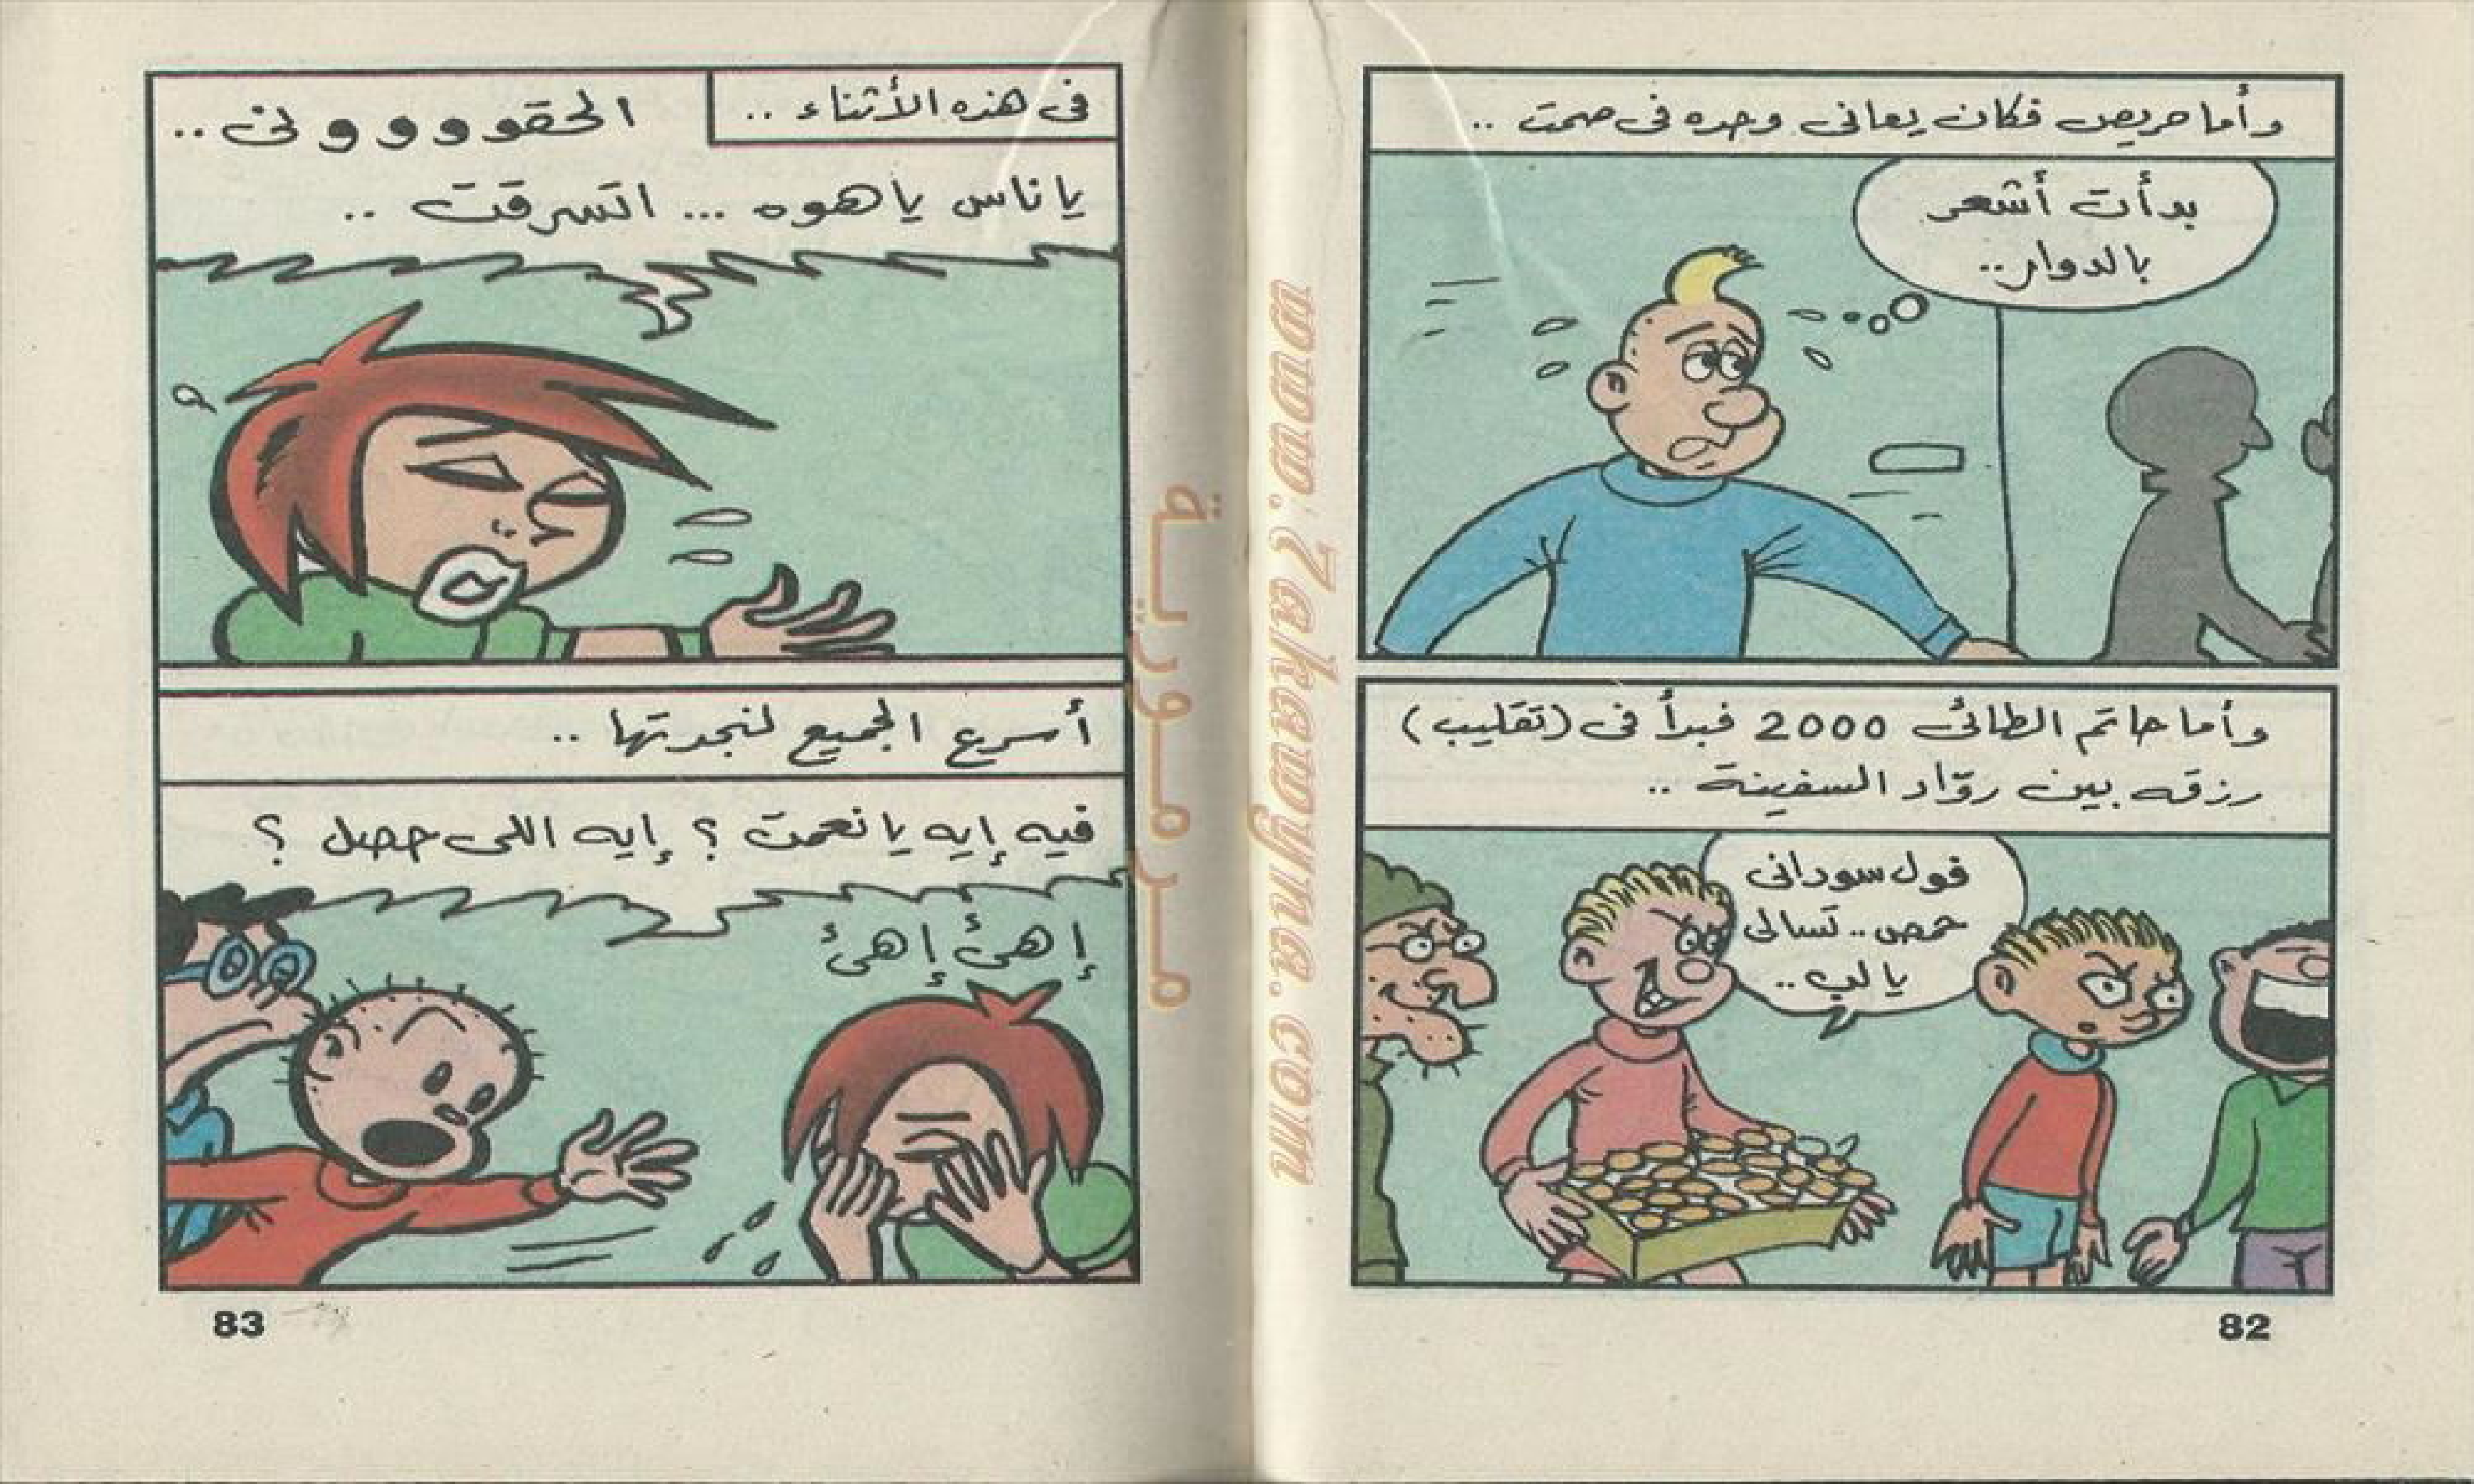 وأما حريص فكان يعانى وحده فى صمت ..
بدأت أشعر
بالدوار..
وأما حاتم الطائى 2000 فبدأ فى (تقليب)
رزقه بين روّاد السفينة ..
فول سودانى
حمص.. تسالى
يا لب ..
82
فى هذه الأثناء ..
الحقوووونى ..
يا ناس يا هوه ... اتسرقت ..
أسرع الجميع لنجدتها ..
فيه إيه يا نعمت ؟ إيه اللى حصل ؟
إهئ إهئ
83
www.Zakawyna.com
مرمورية